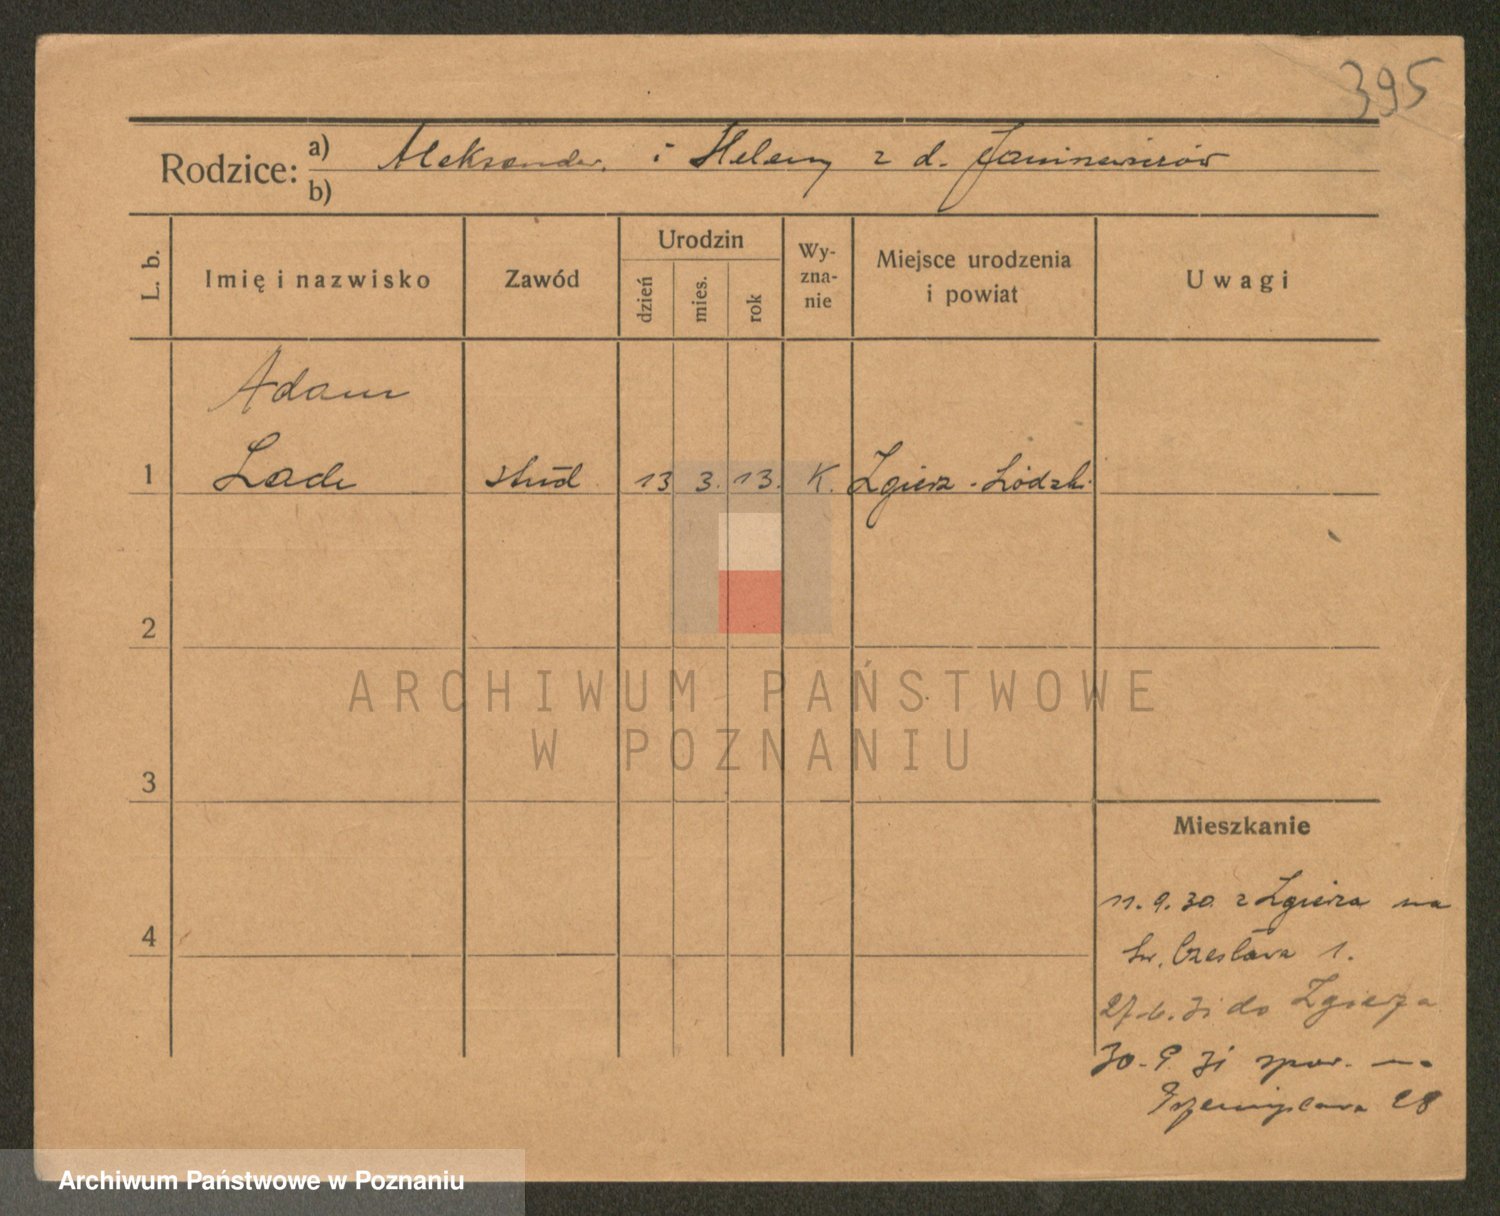 395
Rodzice: a) Aleksander i Heleny z d.
b)
L. b.
Imię i nazwisko
Zawód
Urodzin
dzień
mies.
rok
Wy-
zna-
nie
Miejsce urodzenia
i powiat
Uwagi
Adam
1 Lade stud 13 3. 13. K. Zgierz - Łódzki
2
3
4
ARCHIWUM PAŃSTWOWE
W POZNANIU
Mieszkanie
11. 9. 30 z Zgierza na
św. Czesława 1.
27. 6. 31 do Zgierza
30. 9 31 spow. na
Przemysława 28
Archiwum Państwowe w Poznaniu